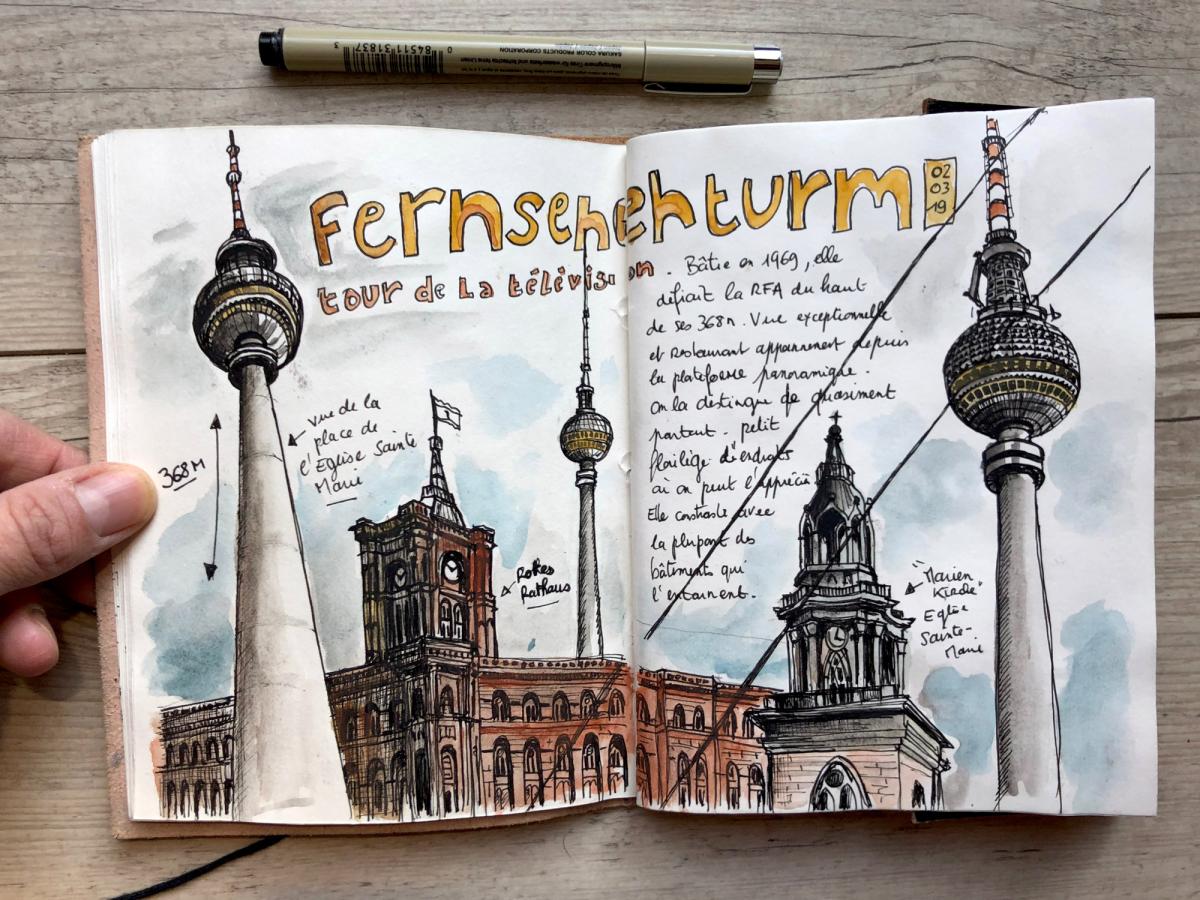 0 84511 31837 3
SAKURA COLOR PRODUCTS CORPORATION
Fernsehehturm
02
03
19
tour de La télévision
. Bâtie en 1969, elle
défiait la RFA du haut
de ses 368m. Vue exceptionnelle
et Restaurant appartiennent depuis
la plateforme panoramique.
On la distingue de quasiment
partout. petit
florilège d'endroits
où on peut l'apprécier
Elle contraste avec
la plupart des
bâtiments qui
l'entourent.
368m
vue de la
place de
l'Eglise Sainte
Marie
Rotes
Rathaus
"Marien
Kirche"
Eglise
Sainte-
Marie